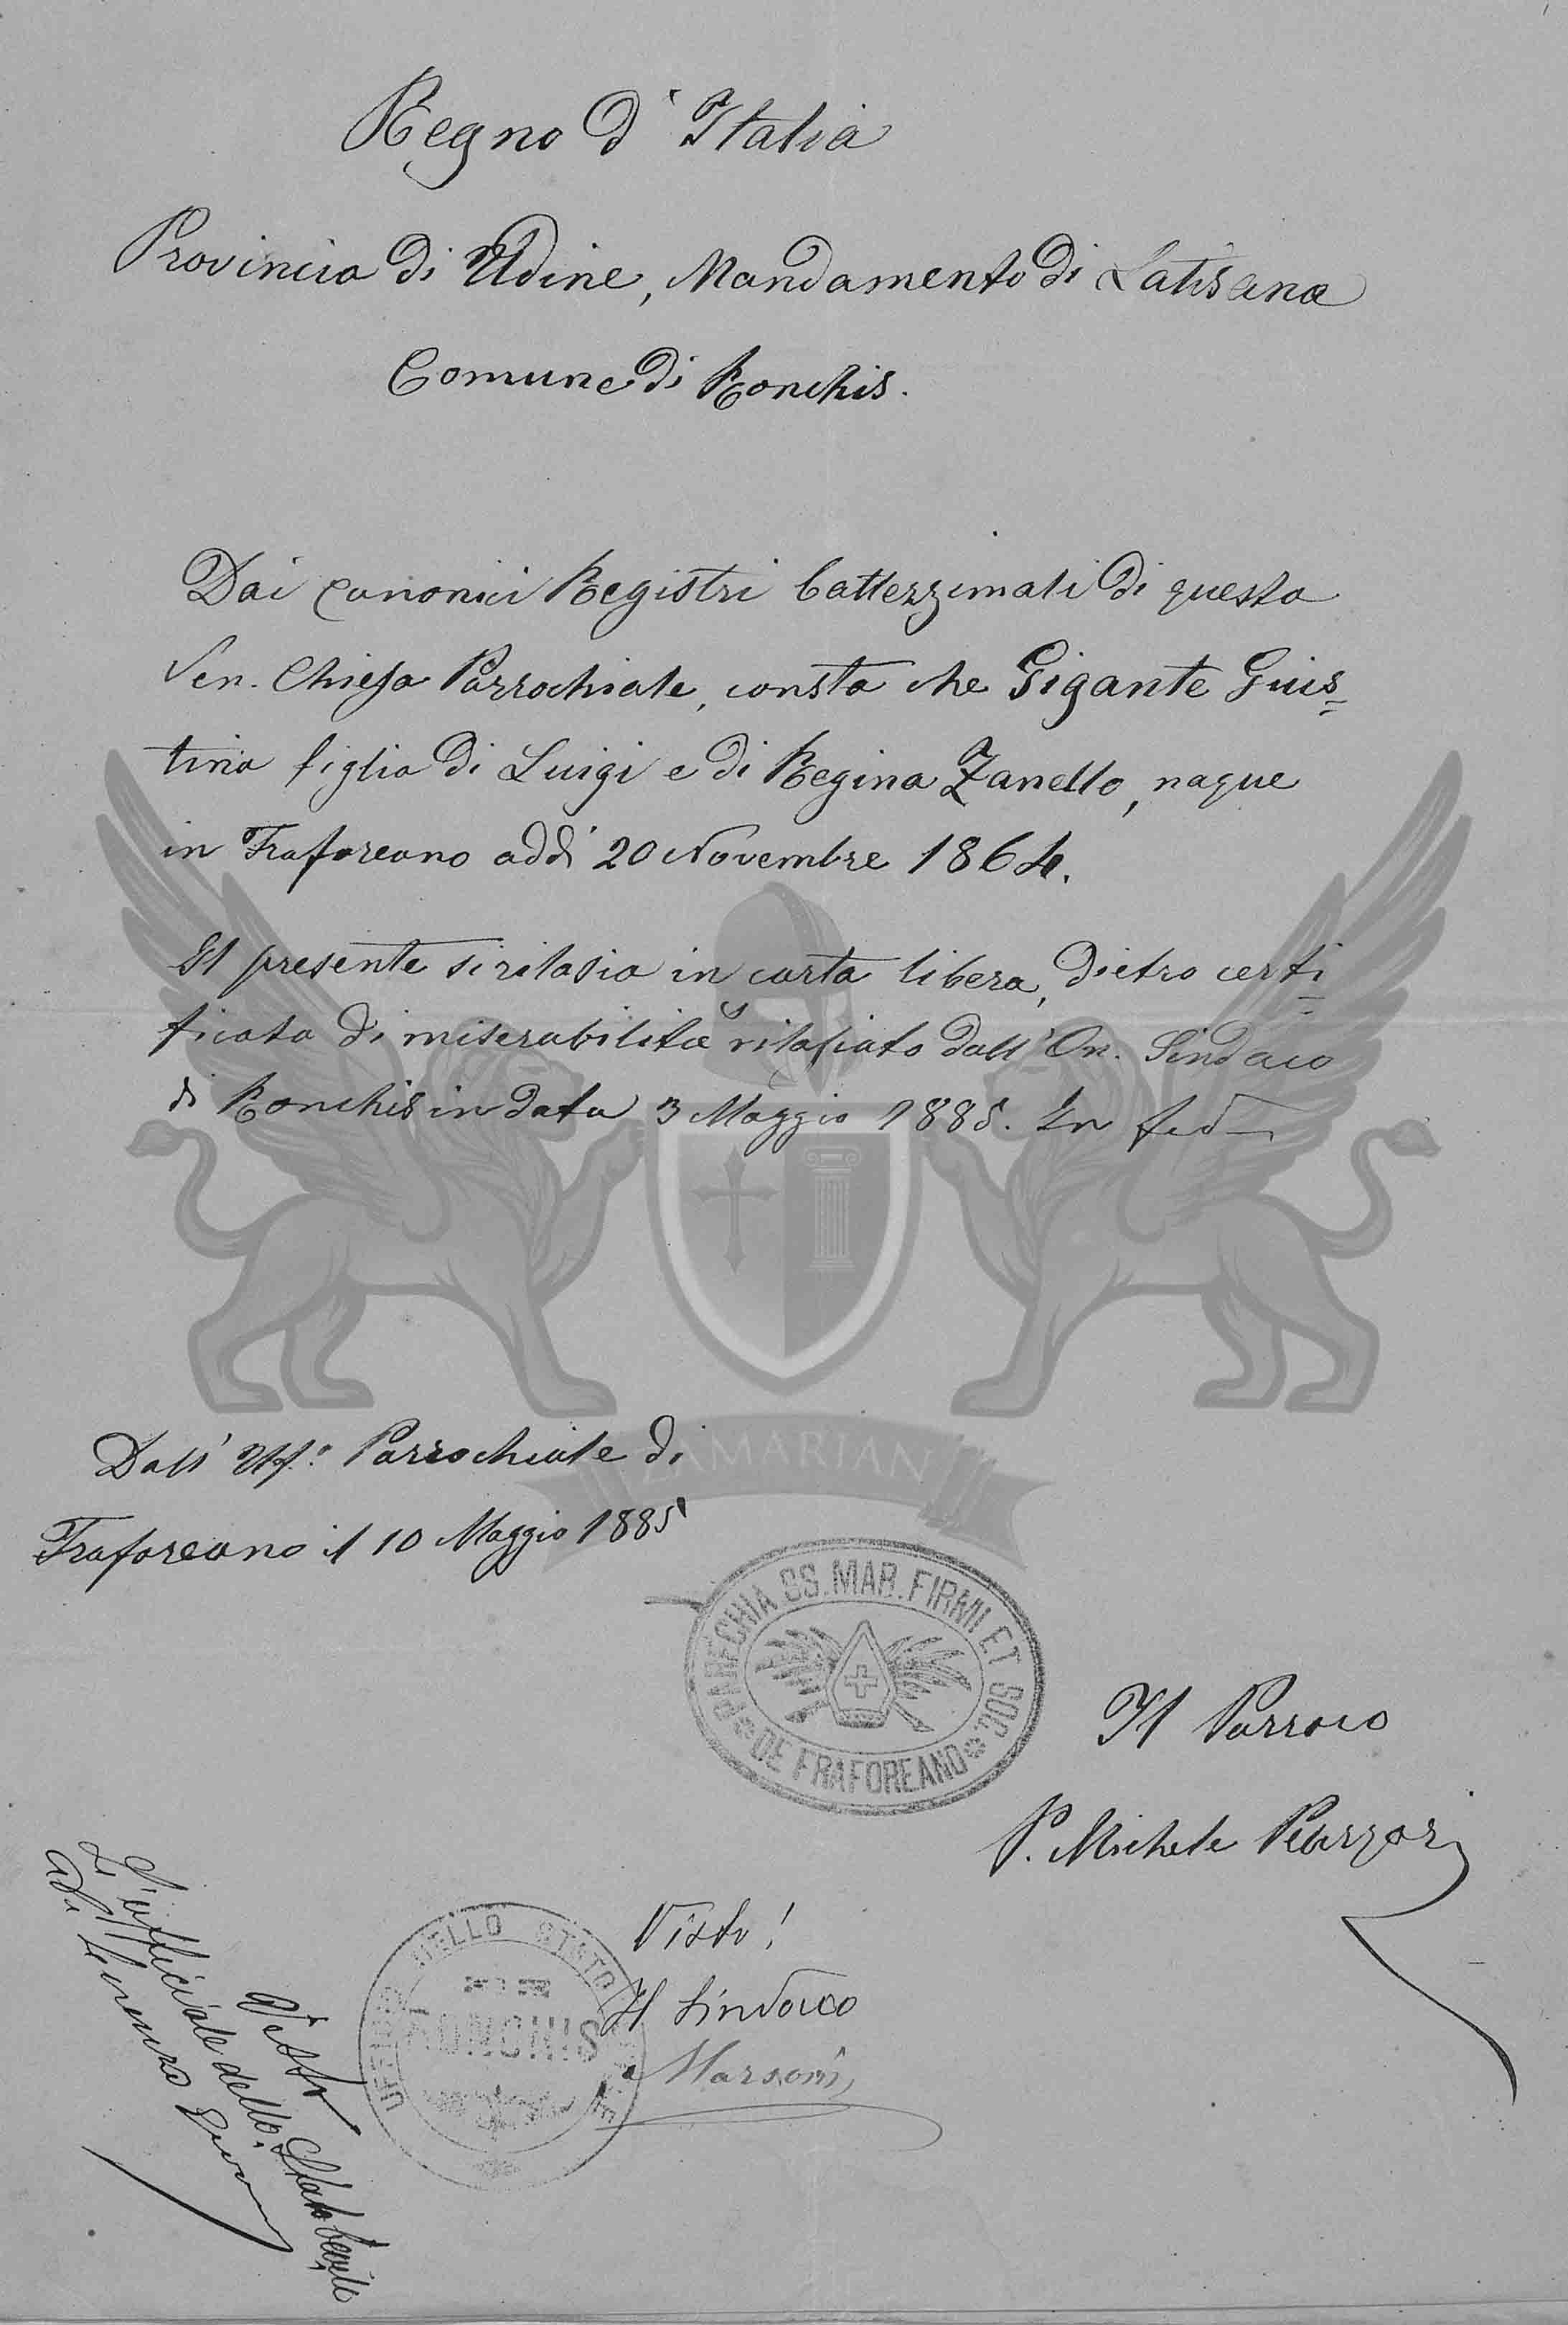 Regno d'Italia
Provincia di Udine, Mandamento di Latisana
Comune di Ronchis.
Dai canonici Registri battezzimali di questa
Ven. Chiesa Parrochiale, consta che Gigante Gius=
tina figlia di Luigi e di Regina Zanello, naque
in Fraforeano addì 20 Novembre 1864.
Il presente si rilasia in carta libera, dietro certi=
ficato di miserabilità rilasciato dall'On. Sindaco
di Ronchis in data 3 Maggio 1885. In fede
Dall' Uff.º Parrochiale di
ZAMARIAN
Fraforeano il 10 Maggio 1885
PARECHIA SS. MAR. FIRMII ET SOC.
DE FRAFOREANO
Il Parroco
P. Michele
Visto!
Il Sindaco
Marsoni
UFFICIO DELLO STATO CIVILE
RONCHIS
Visto
L'ufficiale dello Stato Civile